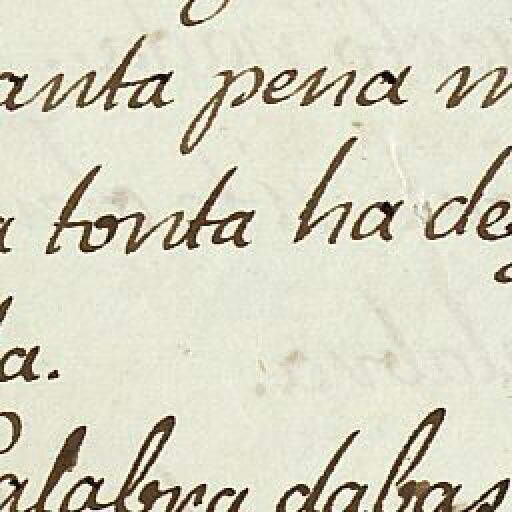 anta pena m
a tonta ha de
la.
Palabra dabas